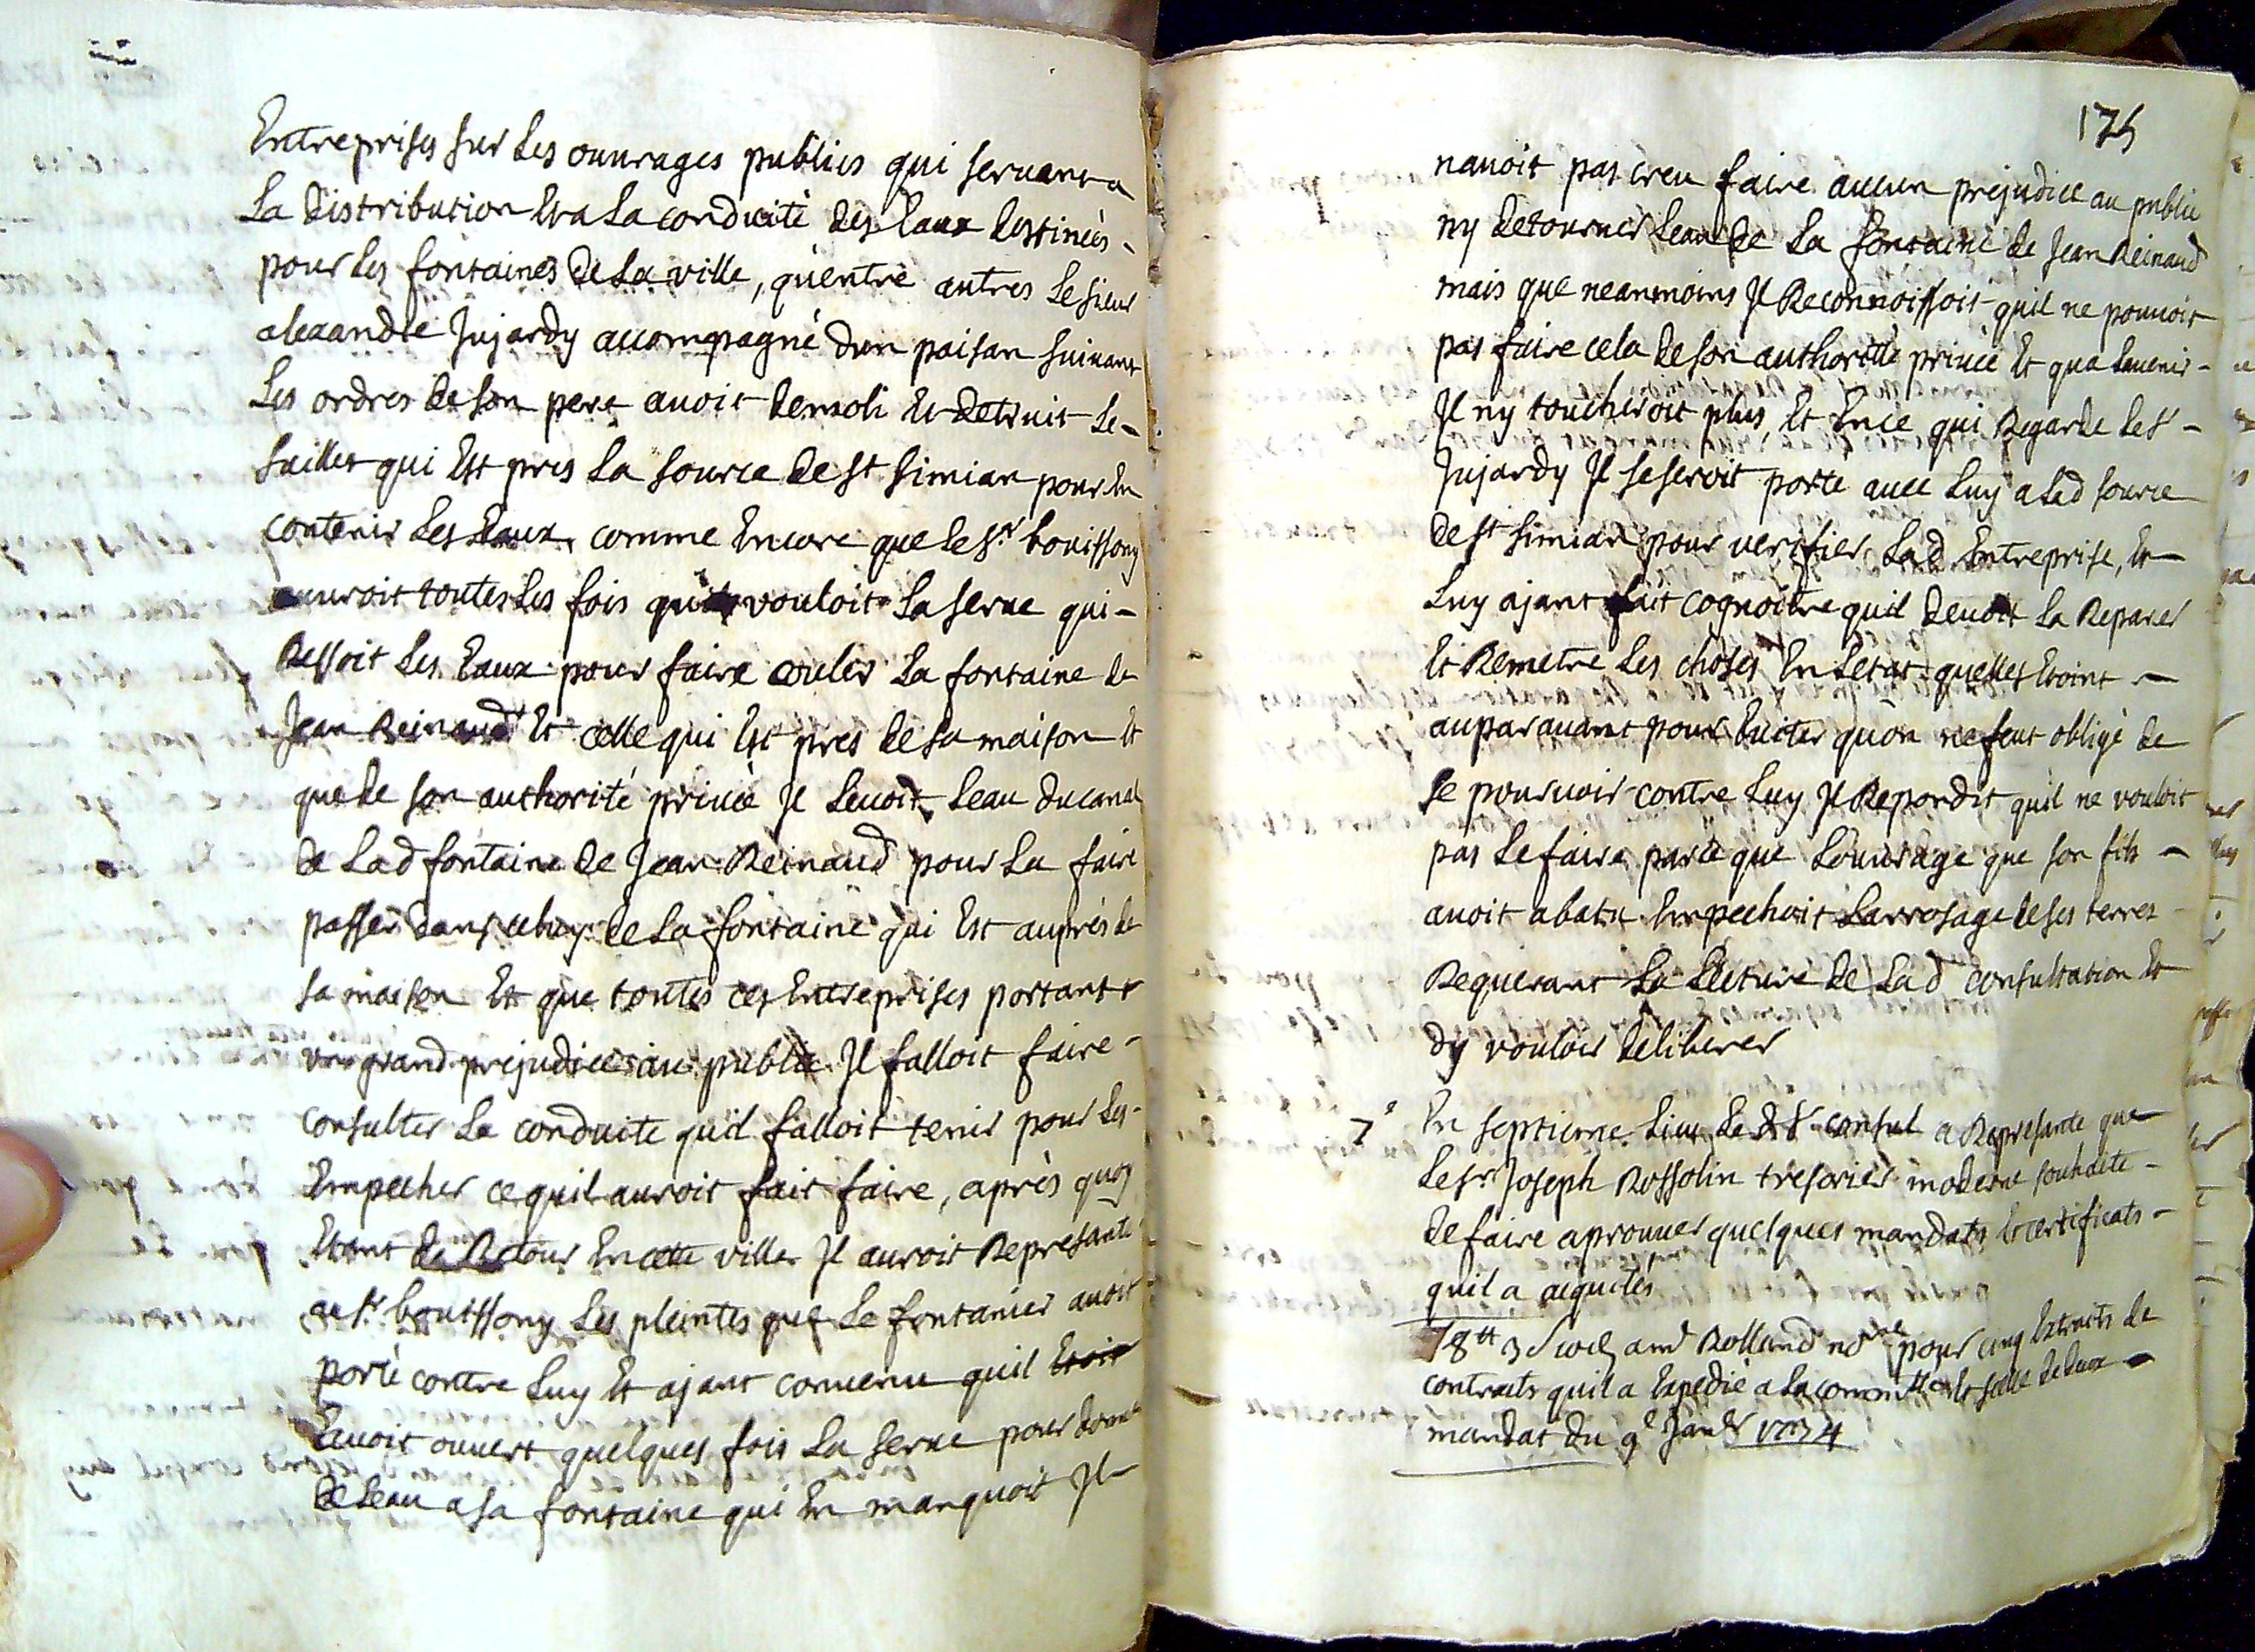 Entreprises sur Les ouurages publics qui seruent a
La distribution Et a La conduite des Eaux destinées
pour Les fontaines de La ville, quentre autres Le sieur
alexandre Jujardy accompagné dun paisan suiuant
Les ordres de son pere auoit demoli Et detruit Le
failles qui Est pres La source de st simian pour En
contenir Les Eaux, comme Encore que Le sr bouissony
ouuroit toutes Les fois quil vouloit La serue qui
Ressoit Les Eaux pour faire couler La fontaine de
Jean Reinaud Et celle qui Est pres de sa maison Et
que de son authorité priuée Il Leuoit Leau du canal
de Lad fontaine de Jean Reinaud pour La faire
passer dans celuy de La fontaine qui Est auprès de
sa maison Et que toutes ces Entreprises portant
vn grand prejudice au public Il falloit faire
consulter La conduite quil falloit tenir pour Les
Empecher ce quil auroit fait faire, après quoy
Etant de Retour En cette ville Il auroit Represanté
au sr bouissony Les pleintes que Le fontanier auoit
porté contre Luy Et ajant conuenu quil Etoit
auoit ouuert quelques fois La serue pour donner
de Leau a sa fontaine qui En manquoit Il
175
nauoit pas creu faire aucun prejudice au public
ny detourner Leau de La fontaine de Jean Reinaud
mais que neanmoins Il Reconnoissoit quil ne pouuoit
pas faire cela de son authorité priuée Et qua Lauenir
Il ny toucheroit plus, Et En ce qui Regarde Le sr
Jujardy Il se seroit porté auec Luy a Lad source
de st simian pour verifier Lad Entreprise, Et
Luy ajant fait cognoitre quil deuoit La Reparer
Et Remetre Les choses En Letat quelles Etoint
auparauant pour Euiter quon ne feut obligé de
se pouruoir contre Luy Il Repondit quil ne vouloit
pas Le faire parce que Louurage que son fils
auoit abatu Empechoit Larrosage de ses terres
Requerant La Lecture de Lad consultation Et
dy vouloir deliberer
7e En septieme Lieu Le d sr consul a Represante que
Le sr Joseph Rossolin tresorier moderne souhaite
de faire aprouuer quelques mandats Et certificats
quil a aquités
18tt 3s and Rolland nore pour cinq Extraits de
contraits quil a Expedié a La commté Et selle de deux
mandat du 9e Janer 1734